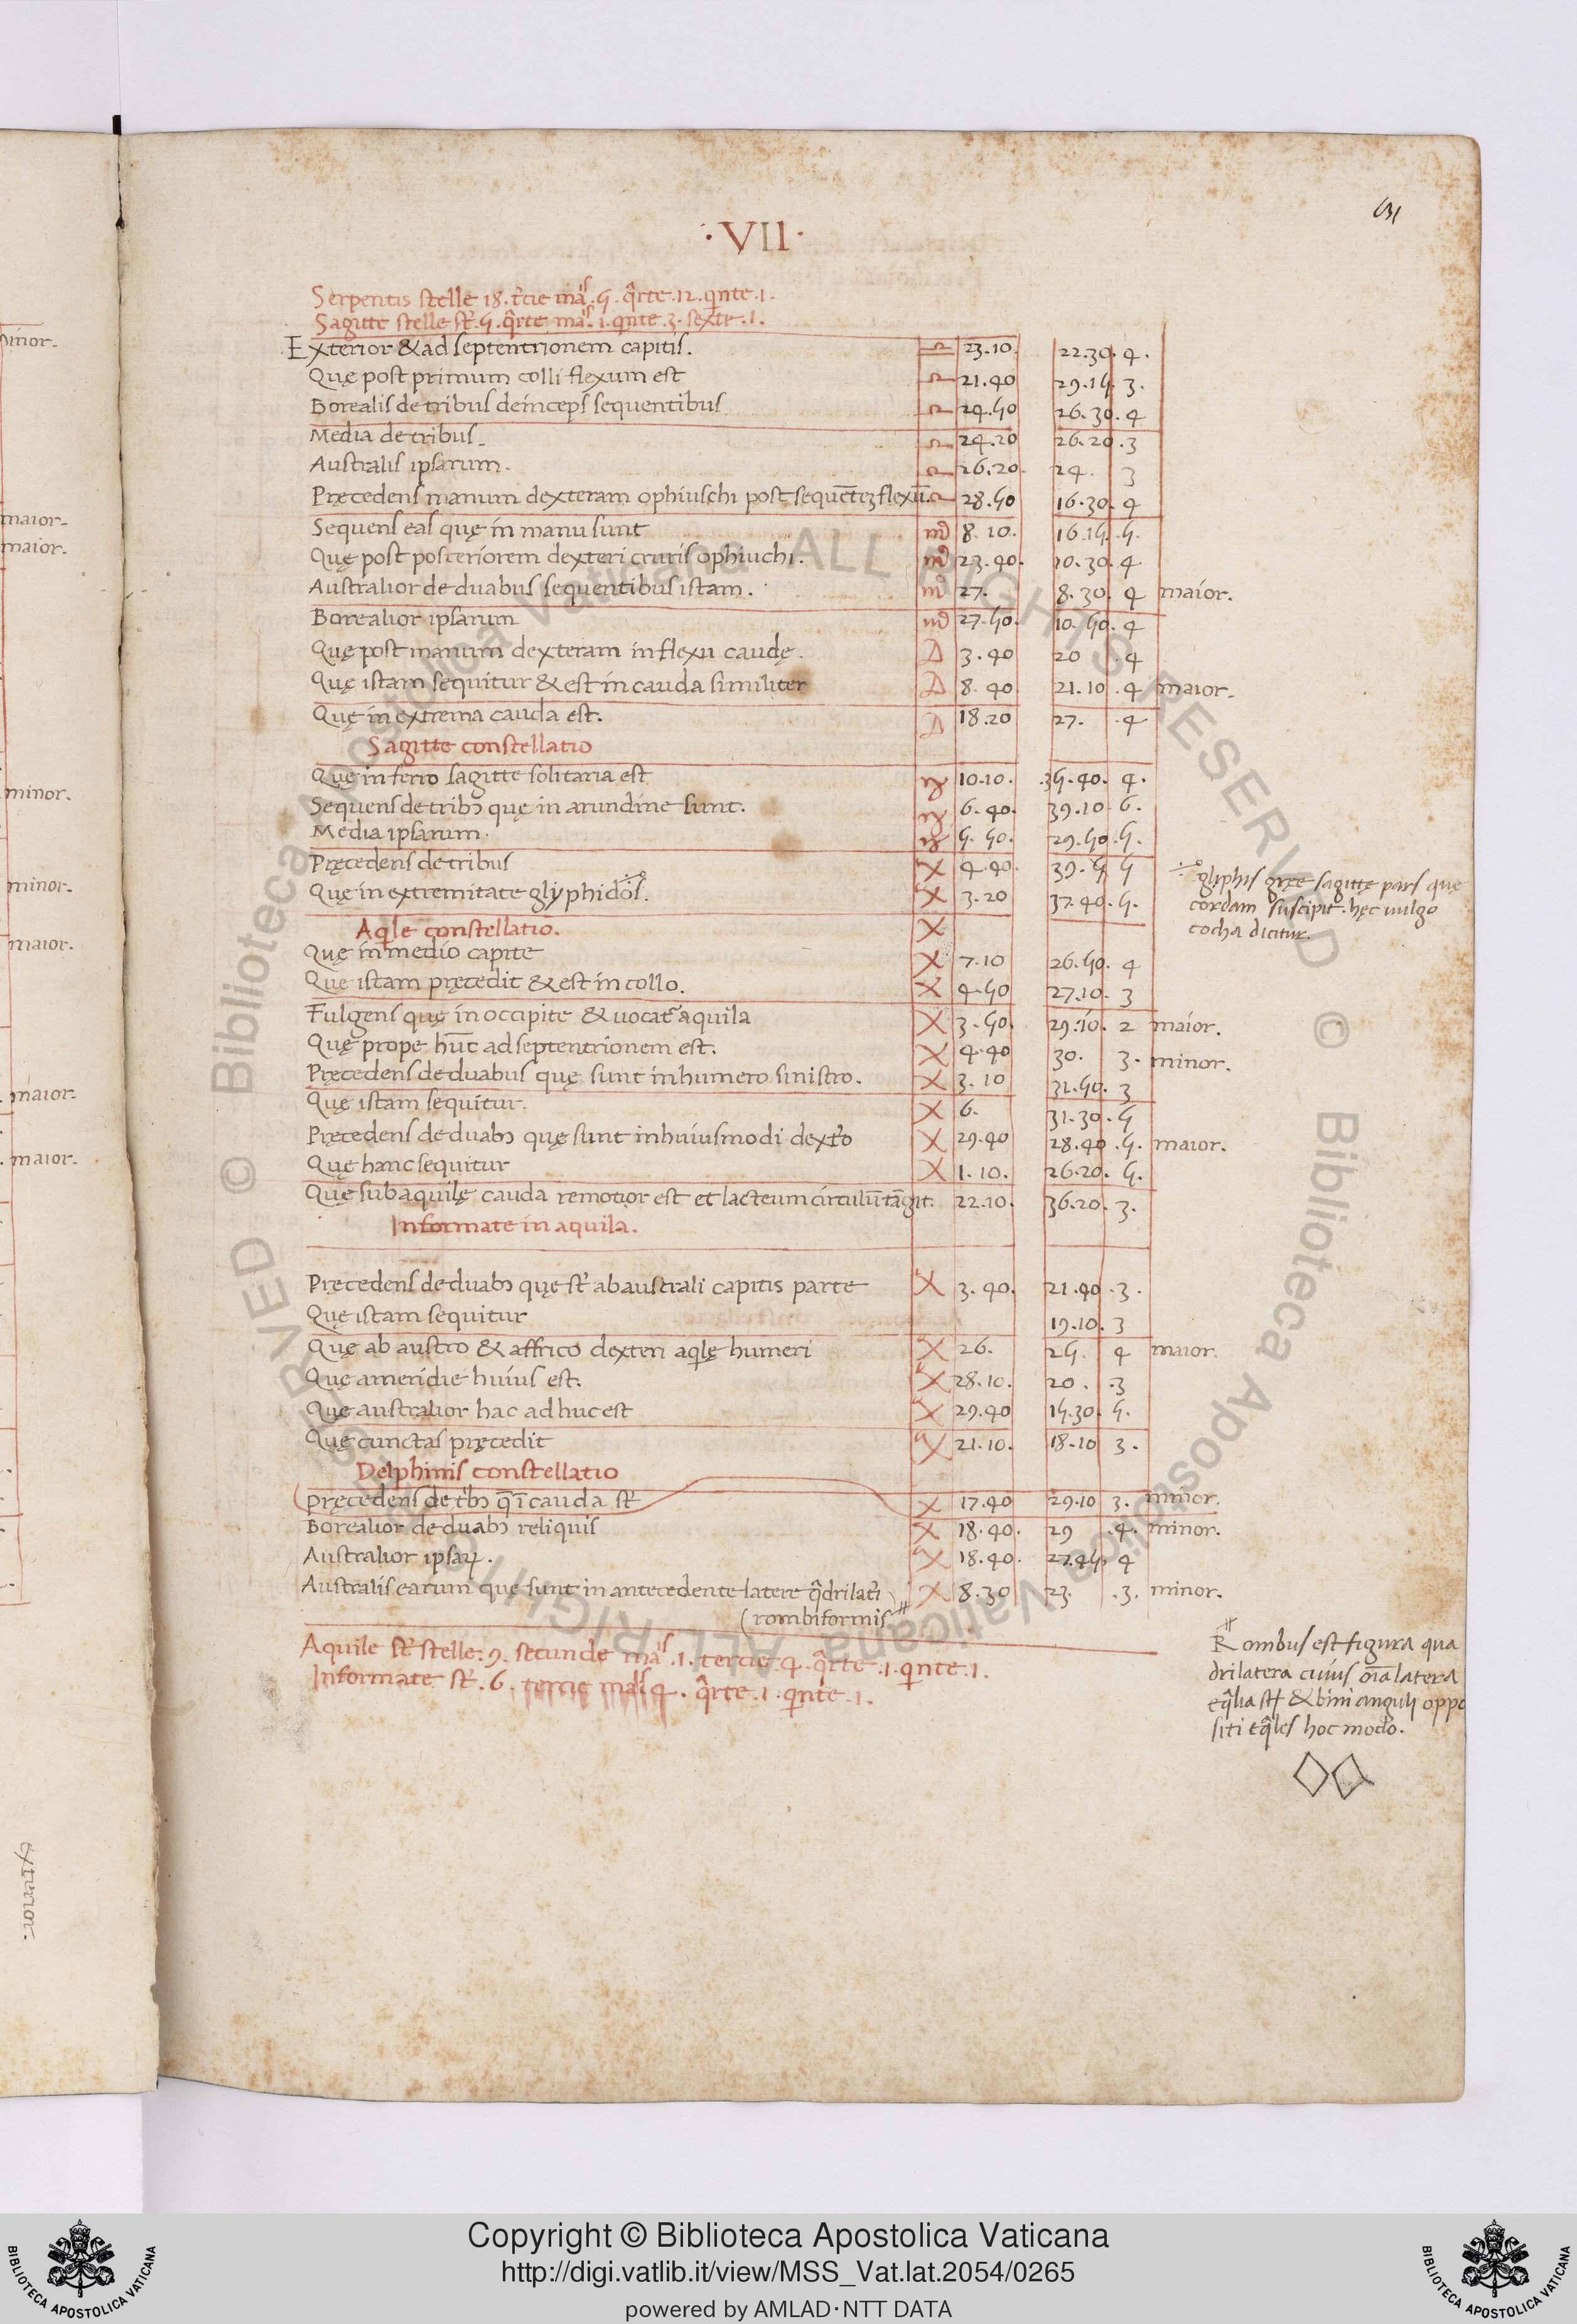 131
·VII·
Serpentis stelle 18. t'cie ma͛. 5. q̂rte .12. qnte .1.
Sagitte stelle st͛. 5. q̂rte ma͛. 1. qnte .3. sexte .1.
Exterior & ad septentrionem capitis. ♎ 23.10. 22.30. 4.
Quę post primum colli flexum est ♎ 21.40 29.15. 3.
Borealis de tribus deinceps sequentibus ♎ 24.50 26.30. 4
Media de tribus ♎ 24.20 26.20 .3
Australis ipsarum. ♎ 26.20. 24. 3
Pręcedens manum dexteram ophiuschi post sequētēꝫ flexū. ♎ 28.50 16.30. 4
Sequens eas quę in manu sunt ♏ 8.10. 16.15. .5.
Quę post posteriorem dexteri cruris ophiuchi. ♏ 23.40. 10.30. 4
Australior de duabus sequentibus istam. ♏ 27. 8.30. 4 maior.
Borealior ipsarum ♏ 27.50. 10.50. 4
Quę post manum dexteram in flexu caudę. ♐ 3.40 20 .4
Quę istam sequitur & est in cauda similiter ♐ 8.40 21.10 .4 maior.
Quę in extrema cauda est. ♐ 18.20 27. .4
Sagitte constellatio
Quę in ferro sagitte solitaria est ♑ 10.10. .35.40. 4.
Sequens de tribꝫ quę in arundine sunt. ♑ 6.40. 39.10 6.
Media ipsarum. ♑ 5.50. 29.50 .5.
Pręcedens de tribus 4.40. 39. 5 5
Quę in extremitate glyphidos. 3.20 37.40. 5.
gliphis gręe sagittę pars quę
cordam suscipit. hęc uulgo
cocha dicitur.
Aqle constellatio.
Quę in medio capite 7.10 26.50. 4
Que istam pręcedit & est in collo. 4.50 27.10. 3
Fulgens quę in occipite & uocat᷑ aquila 3.50. 29.10. 2 maior.
Quę prope hūc ad septentrionem est. 4.40 30. 3. minor.
Pręcedens de duabus quę sunt in humero sinistro. 3.10 31.50. 3
Quę istam sequitur. 6. 31.30. 5
Pręcedens de duabꝫ quę sunt in huiusmodi dext'o 29.40 28.40 .5. maior.
Quę hanc sequitur 1.10. 26.20. 5.
Quę sub aquilę cauda remotior est et lacteum circulū tāgit. 22.10. 36.20. 3.
Informate in aquila.
Pręcedens de duabꝫ quę st͛ ab australi capitis parte 3.40. 21.40 .3.
Quę istam sequitur 19.10. 3
Quę ab austro & affrico dexteri aqlę humeri 26. 25. 4 maior.
Quę a meridie huius est. 28.10. 20. .3
Quę australior hac adhuc est 29.40 15.30. 5.
Quę cunctas pręcedit 21.10. 18.10 3.
Delphinis constellatio
pręcedens de t'bꝫ q̄ ī cauda st͛ 17.40 29.10 3. minor.
Borealior de duabꝫ reliquis 18.40. 29 .4. minor.
Australior ipsaꝝ. 18.40. 27.45. 4
Australis earum quę sunt in antecedente latere q̂drilat'i 8.30 23. .3. minor.
(rombiformis
Aquile st͛ stelle. 9. secunde ma͛ .1. tercie .4. q̂rte .1. qnte .1.
Informate st͛ .6. tercie ma͛ 4. q̂rte .1. qnte .1.
Rombus est figura qua
drilatera cuius oīa latera
eq̂lia st͛ & bini anguli oppo
siti eq̂les hoc modo.
inor.
maior.
maior.
minor.
minor.
maior.
maior.
maior.
exterior.
Copyright © Biblioteca Apostolica Vaticana
http://digi.vatlib.it/view/MSS_Vat.lat.2054/0265
powered by AMLAD·NTT DATA
BIBLIOTECA APOSTOLICA VATICANA
BIBLIOTECA APOSTOLICA VATICANA
© Biblioteca Apostolica Vaticana ALL RIGHTS RESERVED
© Biblioteca Apostolica Vaticana ALL RIGHTS RESERVED